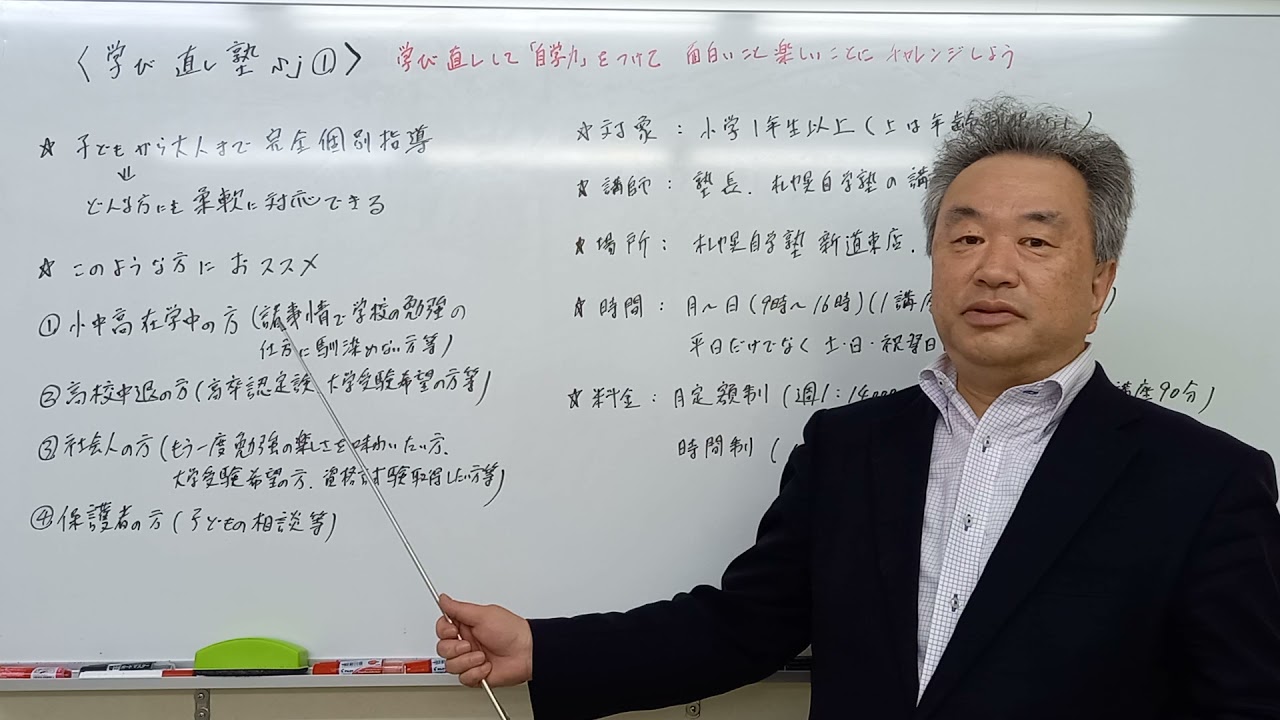 〈学び直し塾 sj①〉 学び直しして「自学力」をつけて 面白いこと楽しいことにチャレンジしよう
☆ 子どもから大人まで完全個別指導
⇓
どんな方にも柔軟に対応できる
☆ このような方におススメ
① 小中高在学中の方(諸事情で学校の勉強の
仕方に馴染めない方等)
② 高校中退の方(高卒認定試 大学受験希望の方等)
③ 社会人の方(もう一度勉強の楽しさを味わいたい方、
大学受験希望の方、資格試験取得したい方等)
④ 保護者の方(子どもの相談等)
☆ 対象:小学1年生以上(上は年齢
☆ 講師:塾長、札幌自学塾の講
☆ 場所:札幌自学塾 新道東店、
☆ 時間:月〜日(9時〜16時)(1講
平日だけでなく土・日・祝
☆ 料金:月定額制(週1:14000 講座90分)
時間制(